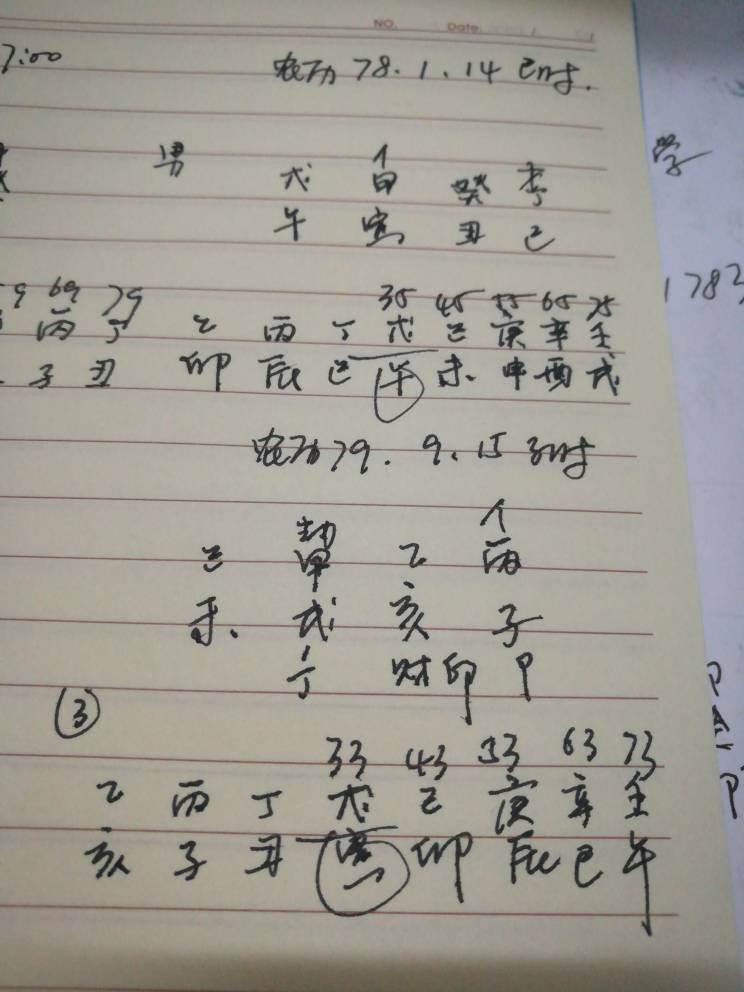 NO. Date
7:00 农历 78.1.14 巳时.
学
男 戊 甲 癸
午 寅 丑 巳
1783
9 69 79 35 45 55 65 75
丙 丁 乙 丙 丁 戊 己 庚 辛 壬
子 丑 卯 辰 巳 午 未 申 酉 戌
农历79.9.15 子时
己 甲 乙 丙
未 戌 亥 子
丁 财 卩 卩
③
33 43 53 63 73
乙 丙 丁 戊 己 庚 辛 壬
亥 子 丑 寅 卯 辰 巳 午